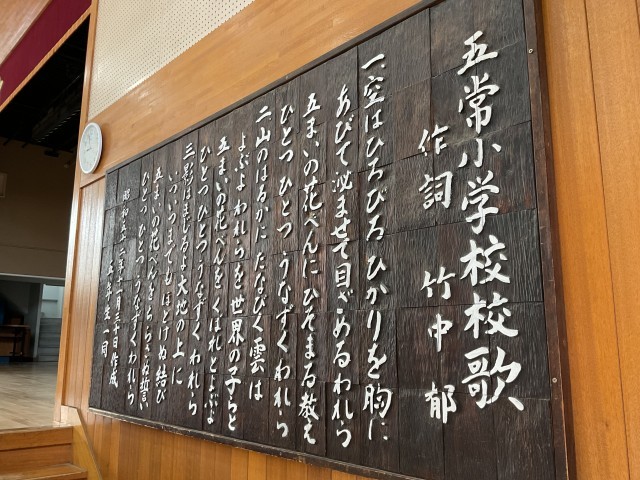 五常小学校校歌
作詞 竹中郁
一、空はひろびろ ひかりを胸に
あびて泌ませて目ざめるわれら
五まいの花べんにひそまる教え
ひとつ ひとつ うなずくわれら
二、山のはるかに たなびく雲は
よぶよ われらを世界の子らと
五まいの花べんをくばれとよぶよ
ひとつ ひとつ うなずく われら
三、影はまじるよ大地の上に
いついつまでもほどけぬ結び
五まいの花べんをちらさぬ誓い
ひとつ ひとつ うなずくわれら